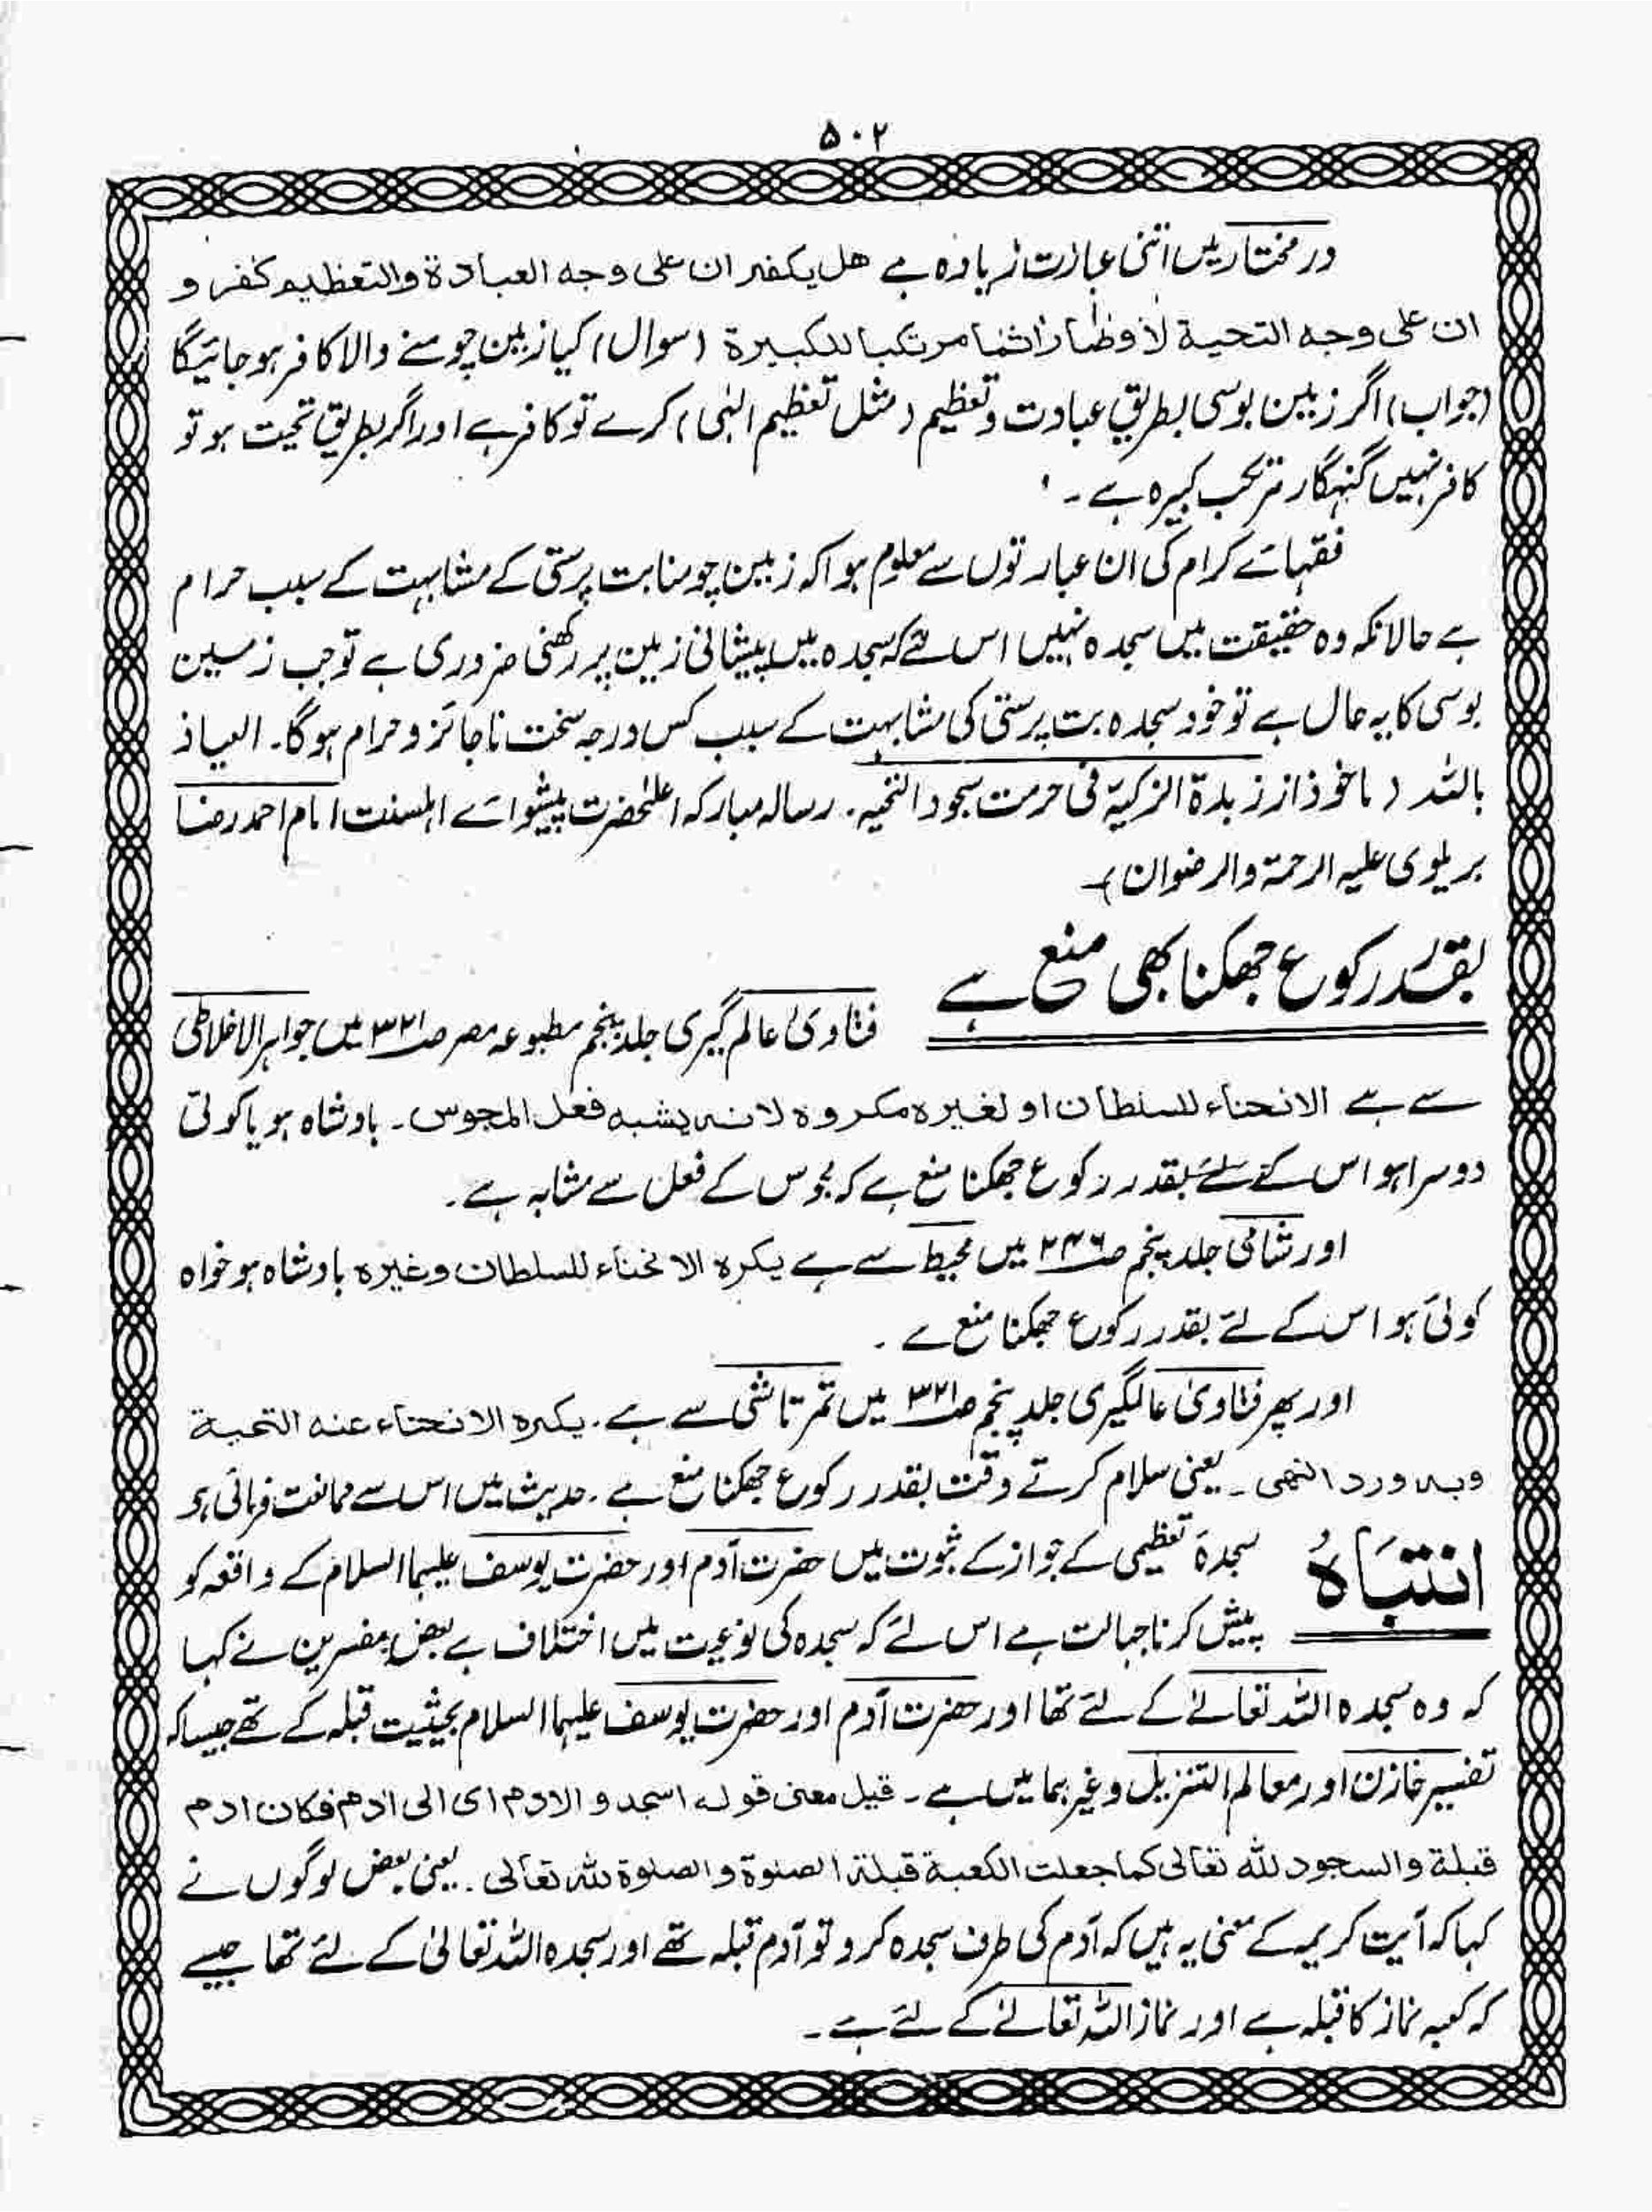 ۵۰۲
درمختار میں اتنی عبارت زیادہ ہے ھل یکفر ان علی وجہ العبادة والتعظیم کفر و
ان علی وجہ التحیة لا وصار اٰثما مرتکبا للکبیرة (سوال) کیا زمین چومنے والا کافر ہو جائیگا
(جواب) اگر زمین بوسی بطریق عبادت و تعظیم (مثل تعظیم الٰہی) کرے تو کافر ہے اور اگر بطریق تحیت ہو تو
کافر نہیں گنہگار مرتکب کبیرہ ہے ۔
فقہائے کرام کی ان عبارتوں سے معلوم ہوا کہ زمین چومنا بت پرستی کے مشابہت کے سبب حرام
ہے حالانکہ وہ حقیقت میں سجدہ نہیں اس لئے کہ سجدہ میں پیشانی زمین پر رکھنی ضروری ہے تو جب زمین
بوسی کا یہ حال ہے تو خود سجدہ بت پرستی کی مشابہت کے سبب کس درجہ سخت ناجائز و حرام ہوگا۔ العیاذ
باللہ (ماخوذ از زبدۃ الزکیۃ فی حرمت سجود التحیہ۔ رسالہ مبارکہ اعلیٰحضرت پیشوائے اہلسنت امام احمد رضا
بریلوی علیہ الرحمۃ والرضوان)
بقدر رکوع جھکنا بھی منع ہے
فتاویٰ عالم گیری جلد پنجم مطبوعہ مصر ص۳۲۱ میں جواہر الاخلاطی
سے ہے الانحناء للسلطان او لغیرہ مکروہ لانہ یشبہ فعل المجوس۔ بادشاہ ہو یا کوئی
دوسرا ہو اس کے لئے بقدر رکوع جھکنا منع ہے کہ مجوس کے فعل سے مشابہ ہے۔
اور شامی جلد پنجم ص۲۴۶ میں محیط سے ہے یکرہ الانحناء للسلطان وغیرہ بادشاہ ہو خواہ
کوئی ہو اس کے لئے بقدر رکوع جھکنا منع ہے ۔
اور پھر فتاویٰ عالمگیری جلد پنجم ص۳۲۱ میں تمرتاشی سے ہے۔ یکرہ الانحناء عنہ التحیة
وبہ ورد النھی ۔ یعنی سلام کرتے وقت بقدر رکوع جھکنا منع ہے ۔ حدیث میں اس سے ممانعت فرمائی ہے
انتباہ
سجدۂ تعظیمی کے جواز کے ثبوت میں حضرت آدم اور حضرت یوسف علیہما السلام کے واقعہ کو
پیش کرنا جہالت ہے اس لئے کہ سجدہ کی نوعیت میں اختلاف ہے بعض مفسرین نے کہا
کہ وہ سجدہ اللہ تعالےٰ کے لئے تھا اور حضرت آدم اور حضرت یوسف علیہما السلام بحیثیت قبلہ کے تھے جیسا کہ
تفسیر خازن اور معالم التنزیل وغیرہما میں ہے ۔ قیل معنی قولہ اسجدوا لاٰدم ای الی اٰدم فکان اٰدم
قبلة والسجود للہ تعالی کما جعلت الکعبة قبلة الصلوة والصلوة للہ تعالی۔ یعنی بعض لوگوں نے
کہا کہ آیت کریمہ کے معنی یہ ہیں کہ آدم کی طرف سجدہ کرو تو آدم قبلہ تھے اور سجدہ اللہ تعالیٰ کے لئے تھا جیسے
کہ کعبہ نماز کا قبلہ ہے اور نماز اللہ تعالےٰ کے لئے ہے ۔